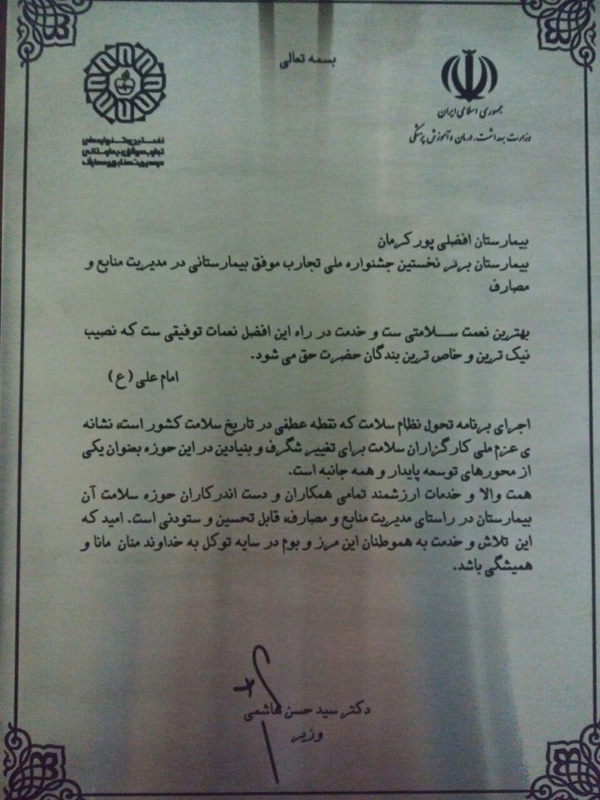 بسمه تعالی
جمهوری اسلامی ایران
وزارت بهداشت، درمان و آموزش پزشکی
نخستین جشنواره ملی
تجارب موفق بیمارستانی
مدیریت منابع و مصارف
بیمارستان افضلی پور کرمان
بیمارستان برتر نخستین جشنواره ملی تجارب موفق بیمارستانی در مدیریت منابع و
مصارف
بهترین نعمت ســـلامتی ست و خدمت در راه این افضل نعمات توفیقی ست که نصیب
نیک ترین و خاص ترین بندگان حضرت حق می شود.
امام علی (ع)
اجرای برنامه تحول نظام سلامت که نقطه عطفی در تاریخ سلامت کشور است، نشانه
ی عزم ملی کارگزاران سلامت برای تغییر شگرف و بنیادین در این حوزه بعنوان یکی
از محورهای توسعه پایدار و همه جانبه است.
همت والا و خدمات ارزشمند تمامی همکاران و دست اندرکاران حوزه سلامت آن
بیمارستان در راستای مدیریت منابع و مصارف، قابل تحسین و ستودنی است. امید که
این تلاش و خدمت به هموطنان این مرز و بوم در سایه توکل به خداوند منان مانا و
همیشگی باشد.
دکتر سید حسن هاشمی
وزیر